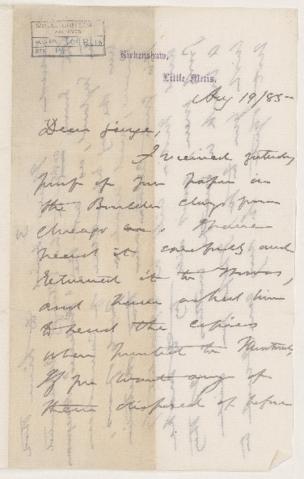 Birkenshaw,
Little Metis.
Aug 19/85
Dear George,
I received yesterday
proof of your paper on
the Boulder Clays from
Chicago and have
read it carefully and
returned it to
and have asked him
to send the copies
when printed to Montreal,
If you want any of
them disposed of before